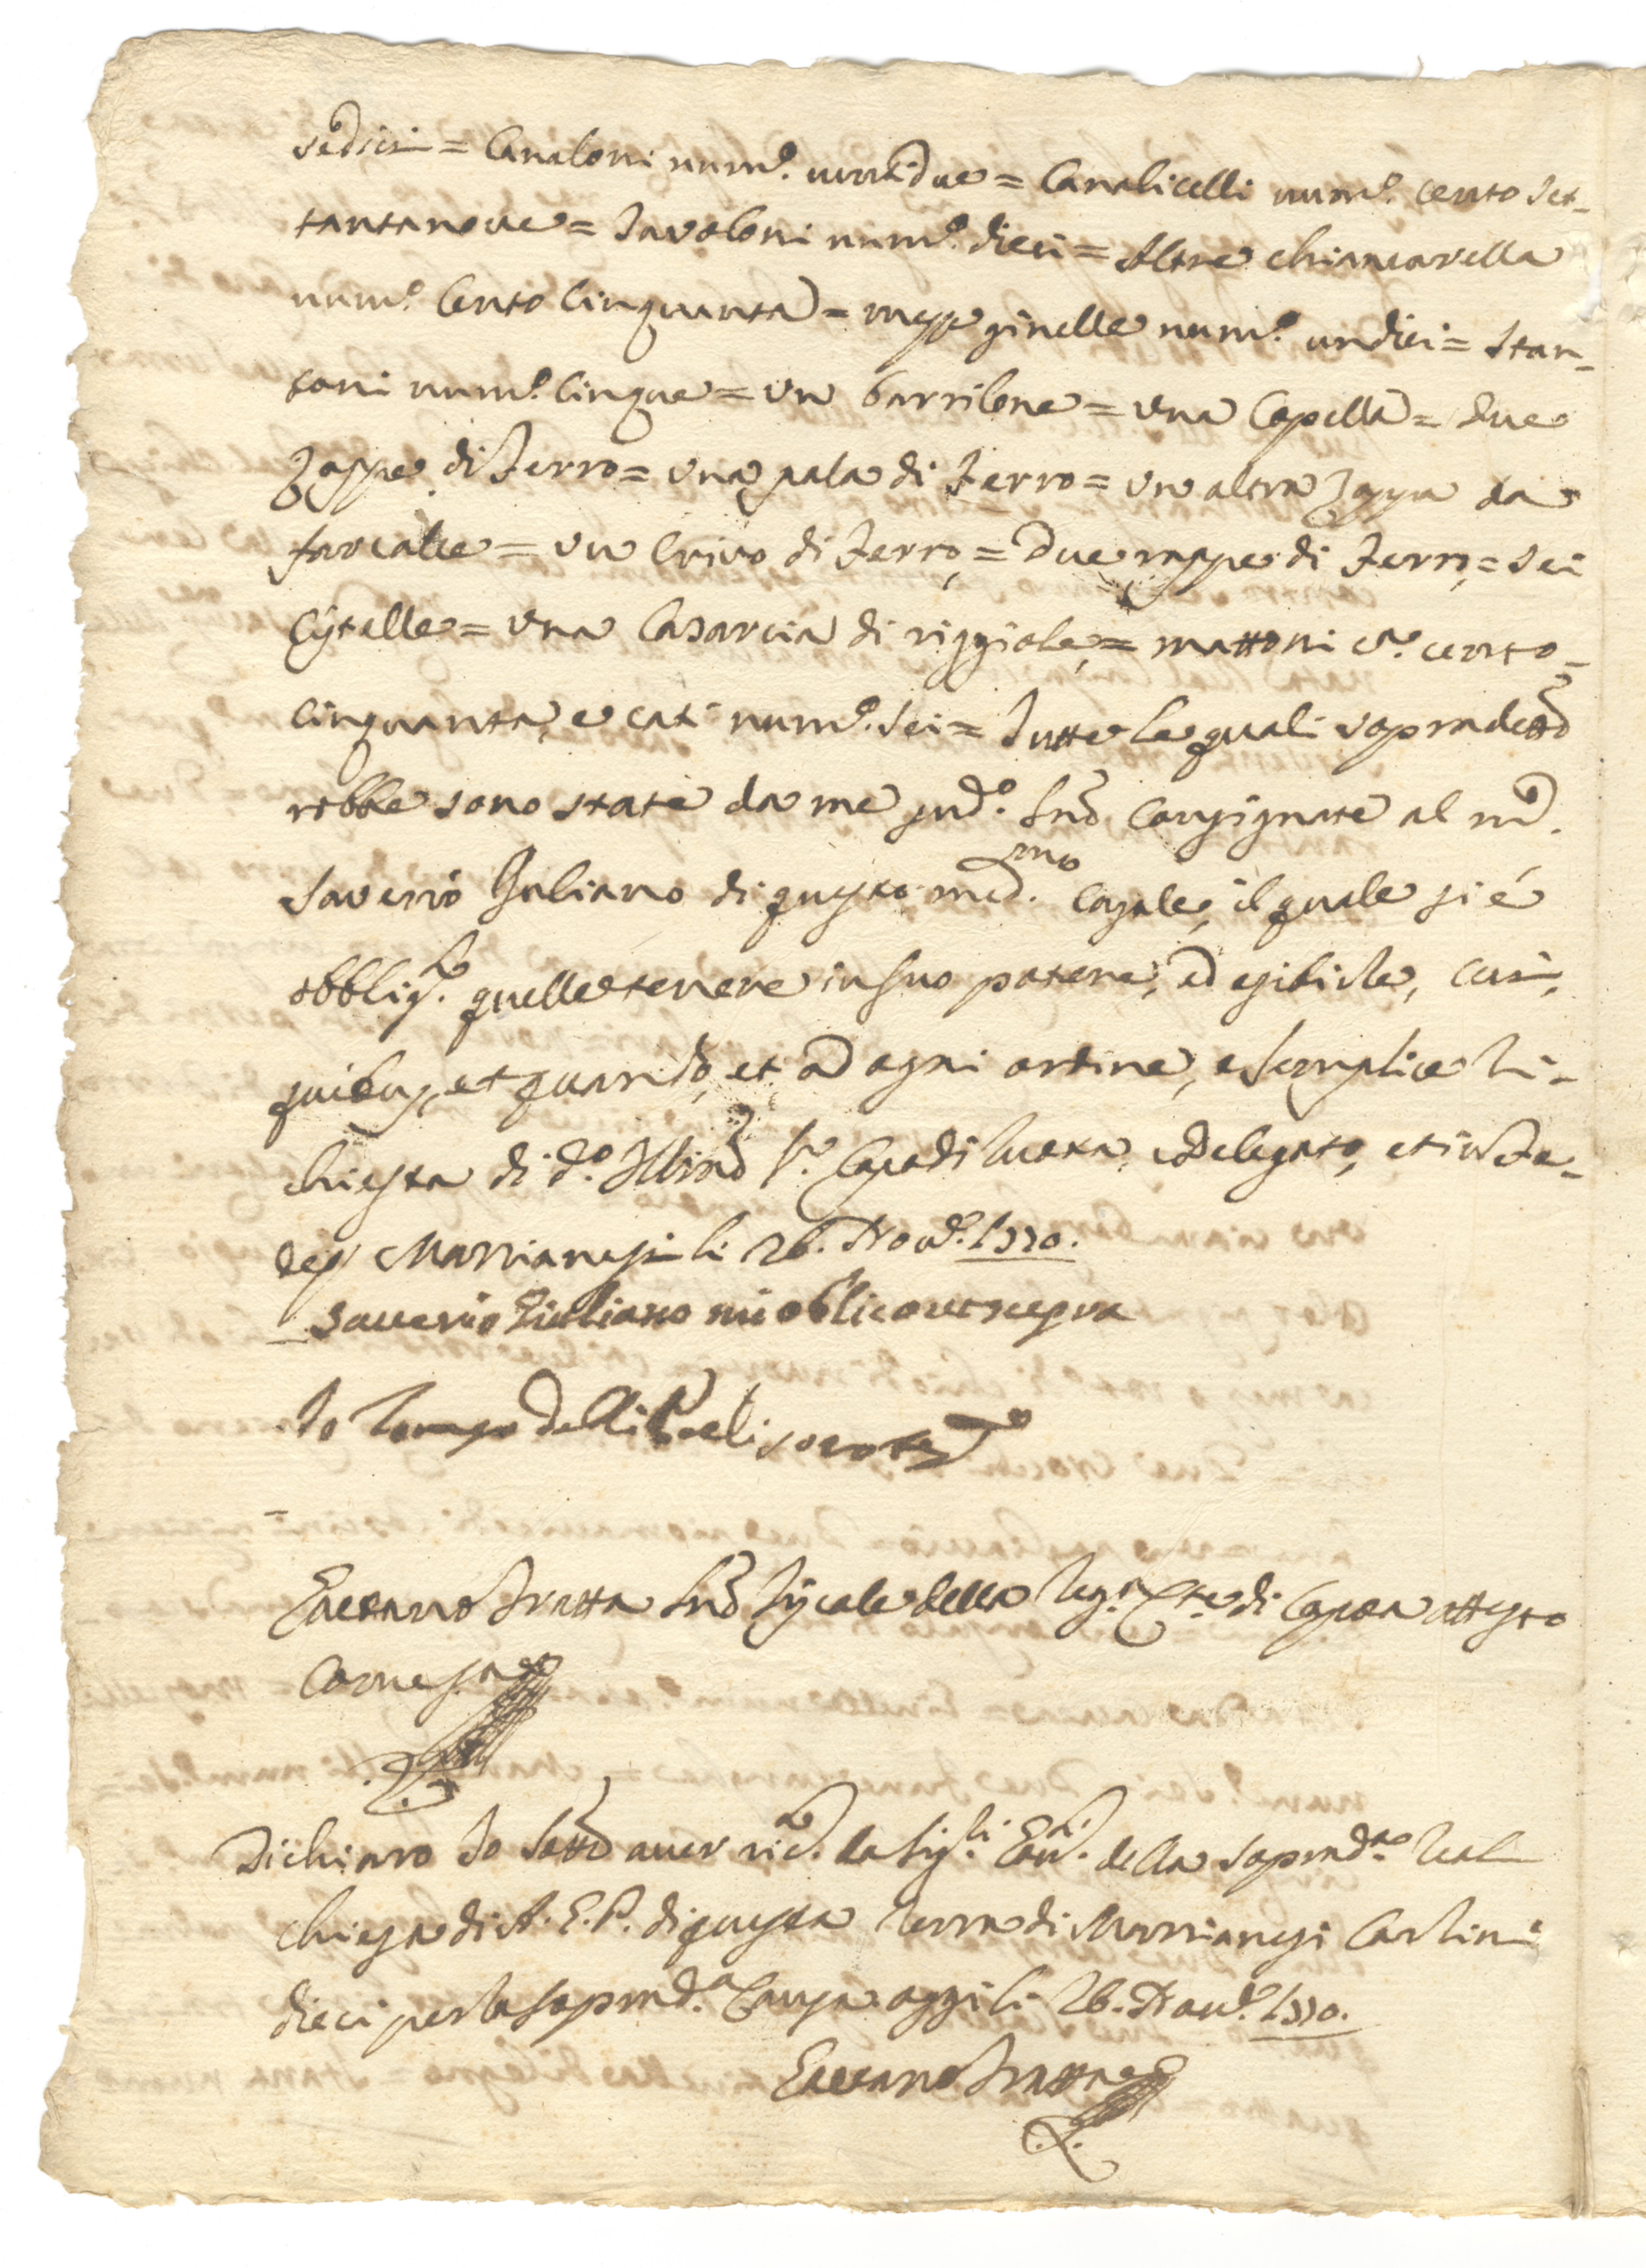 sedici = Canaloni num.º ventidue = Canalicelli num.º cento set-
tantanove = Tavoloni num.º dieci = Altre chiancarelle
num.º Cento Cinquanta = mezze ginelle num.º undici = stan-
toni num.º Cinque = un barrilone = una Copella = due
zappe di ferro = una pala di ferro = un altra zappa da
far calce = un Crivo di ferro = Due rappe di ferro = sei
Cistelle = una Casarcia di riggiole = mattoni n.º cento
cinquanta, e cati num.º sei = Tutte le quali sopradette
robbe sono state da me pnd.º Snō Consignate al md.
Saverio Giuliano di questo med.mo Casale, il quale si è
obblig.to quelle tenere in suo potere, ed esibirle, cui,
quibus, et quando, et ad ogni ordine, e semplice ri-
chiesta di d.º Illmō S.r Capo di Ruota, e Delegato, et in fe-
de Marrianesi li 26. Nov.e 1770.
Saverio Giuliano mi oblico ut supra
Io Tomaso Delli Paoli
Gaetano Tratta Snō Fiscale della Reg.a C.te di Capoa attesto
Come s.a
Dichiaro Io Sottō aver ric.to da Sig.ri della soprad.a Real
Chiesa di A. G. P. di questa Terra di Marrianesi Carlini
dieci per la soprad.a Causa oggi li 26. Nov.e 1770.
Gaetano Tratta